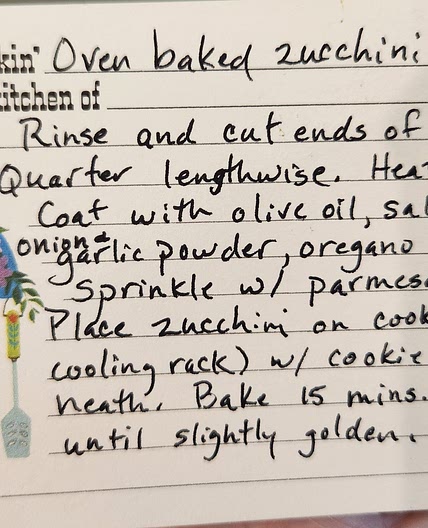 kin' Oven baked zucchini
itchen of
Rinse and cut ends of
Quarter lengthwise. Hea
Coat with olive oil, sal
onion &
garlic powder, oregano
Sprinkle w/ parmes
Place zucchini on cook
cooling rack) w/ cookie
neath. Bake 15 mins.
until slightly golden.